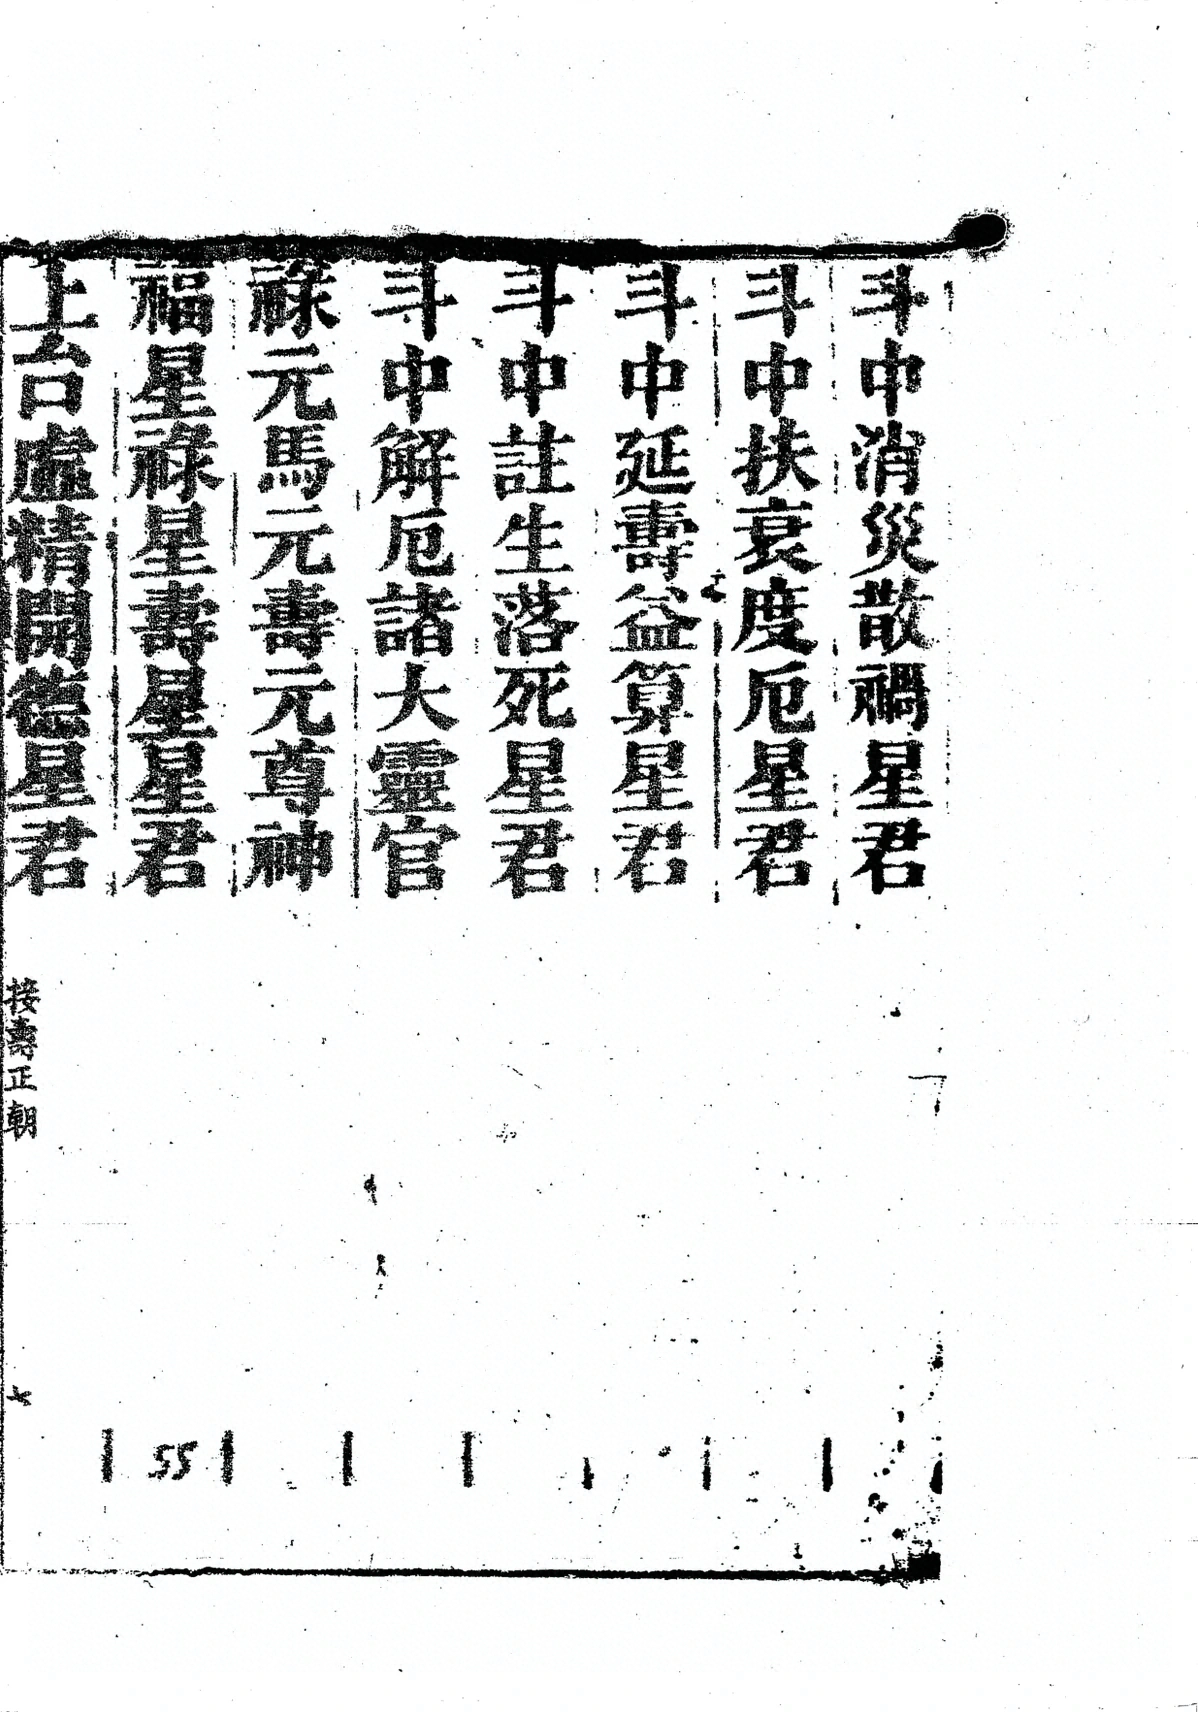 斗中消災散禍星君
斗中扶衰度厄星君
斗中延壽益算星君
斗中註生落死星君
斗中解厄諸大靈官
祿元馬元壽元尊神
福星祿星壽星星君
上台虛精開德星君
接壽正朝
七
55